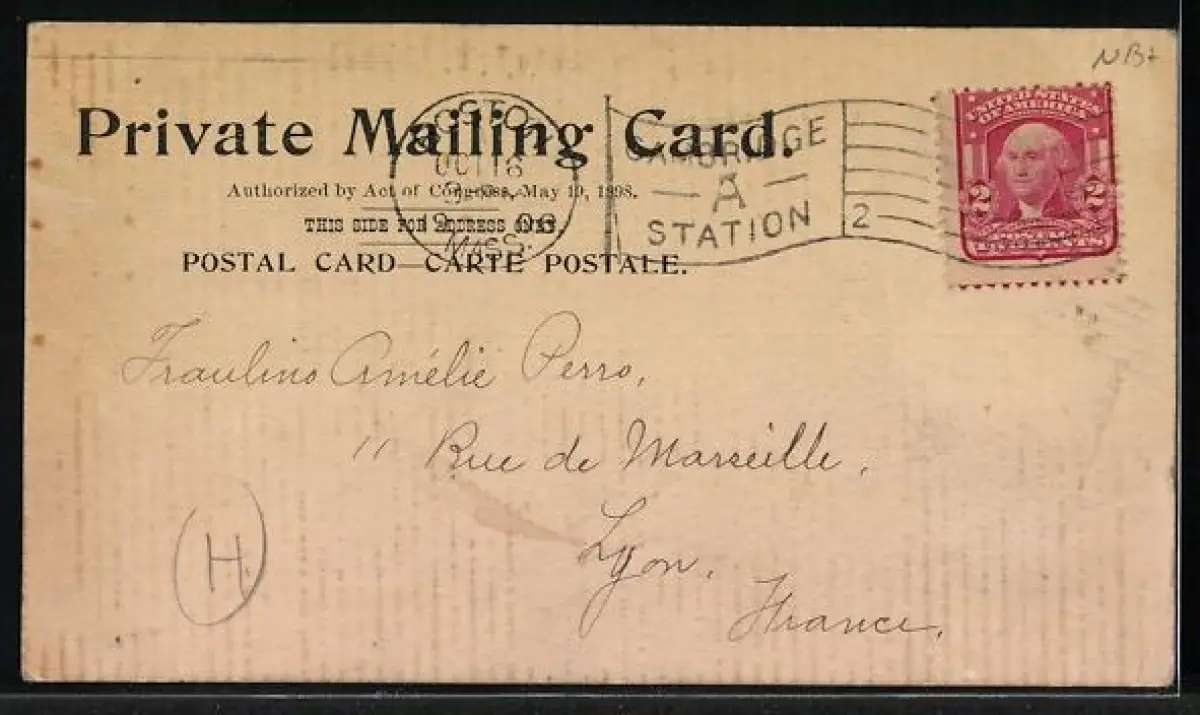 NB+
Private Mailing Card.
Authorized by Act of Congress, May 19, 1898.
THIS SIDE FOR ADDRESS ONLY.
POSTAL CARD—CARTE POSTALE.
BOSTON
OCT 16
MASS.
CAMBRIDGE
A
STATION
2
UNITED STATES
OF AMERICA
2 2
TWO CENTS
Amélie
11 Rue de Marseille,
Lyon,
France,
H